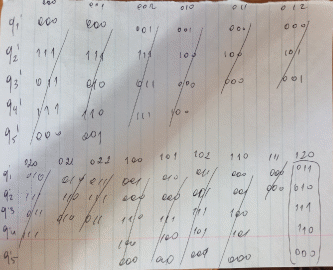 000 001 002 010 011 012
q₁' 000 000 001 001 000 000
q₂' 111 111 111 100 100 101
q₃' 011 010 011 000 000 001
q₄' 111 110 111 100
q₅' 000 001
020 021 022 100 101 102 110 111 120
q₁' 010 010 011 001 010 011 001 000 011
q₂' 111 110 111 000 000 000 000 000 010
q₃' 011 010 011 110 111 111 100 111
q₄' 111 100 100 101 100 110
q₅' 000 010 001 000 000